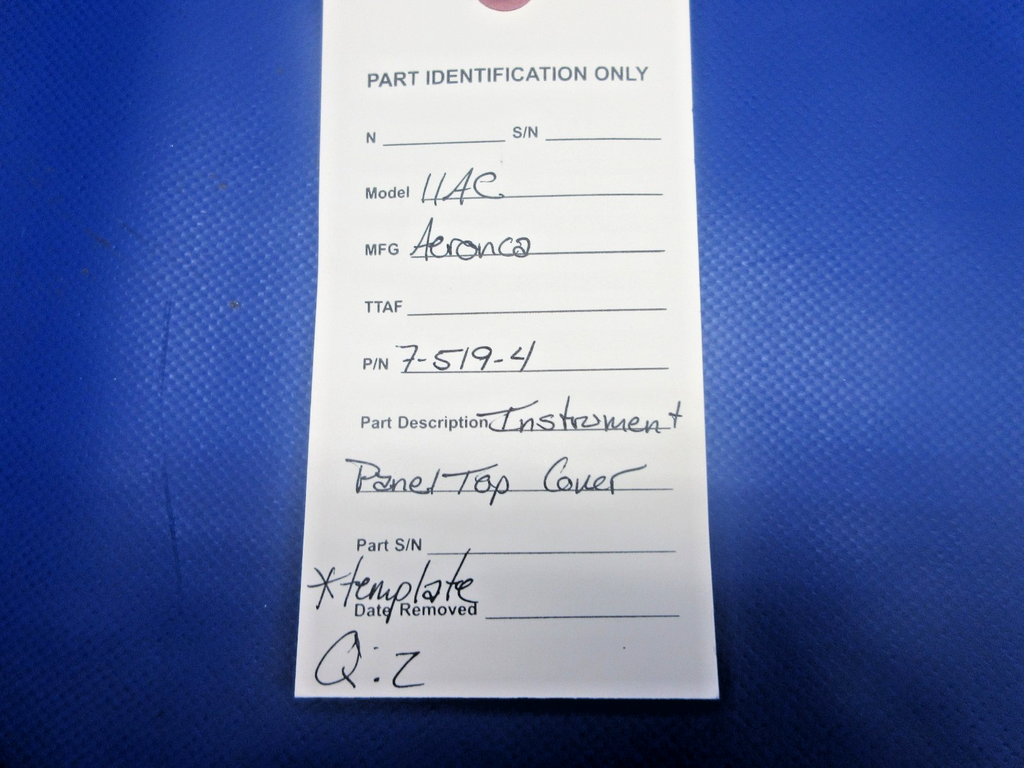 PART IDENTIFICATION ONLY
N S/N
Model 11AC
MFG Aeronca
TTAF
P/N 7-519-4
Part Description Instrument
Panel Top Cover
Part S/N
*template
Date Removed
Q:2